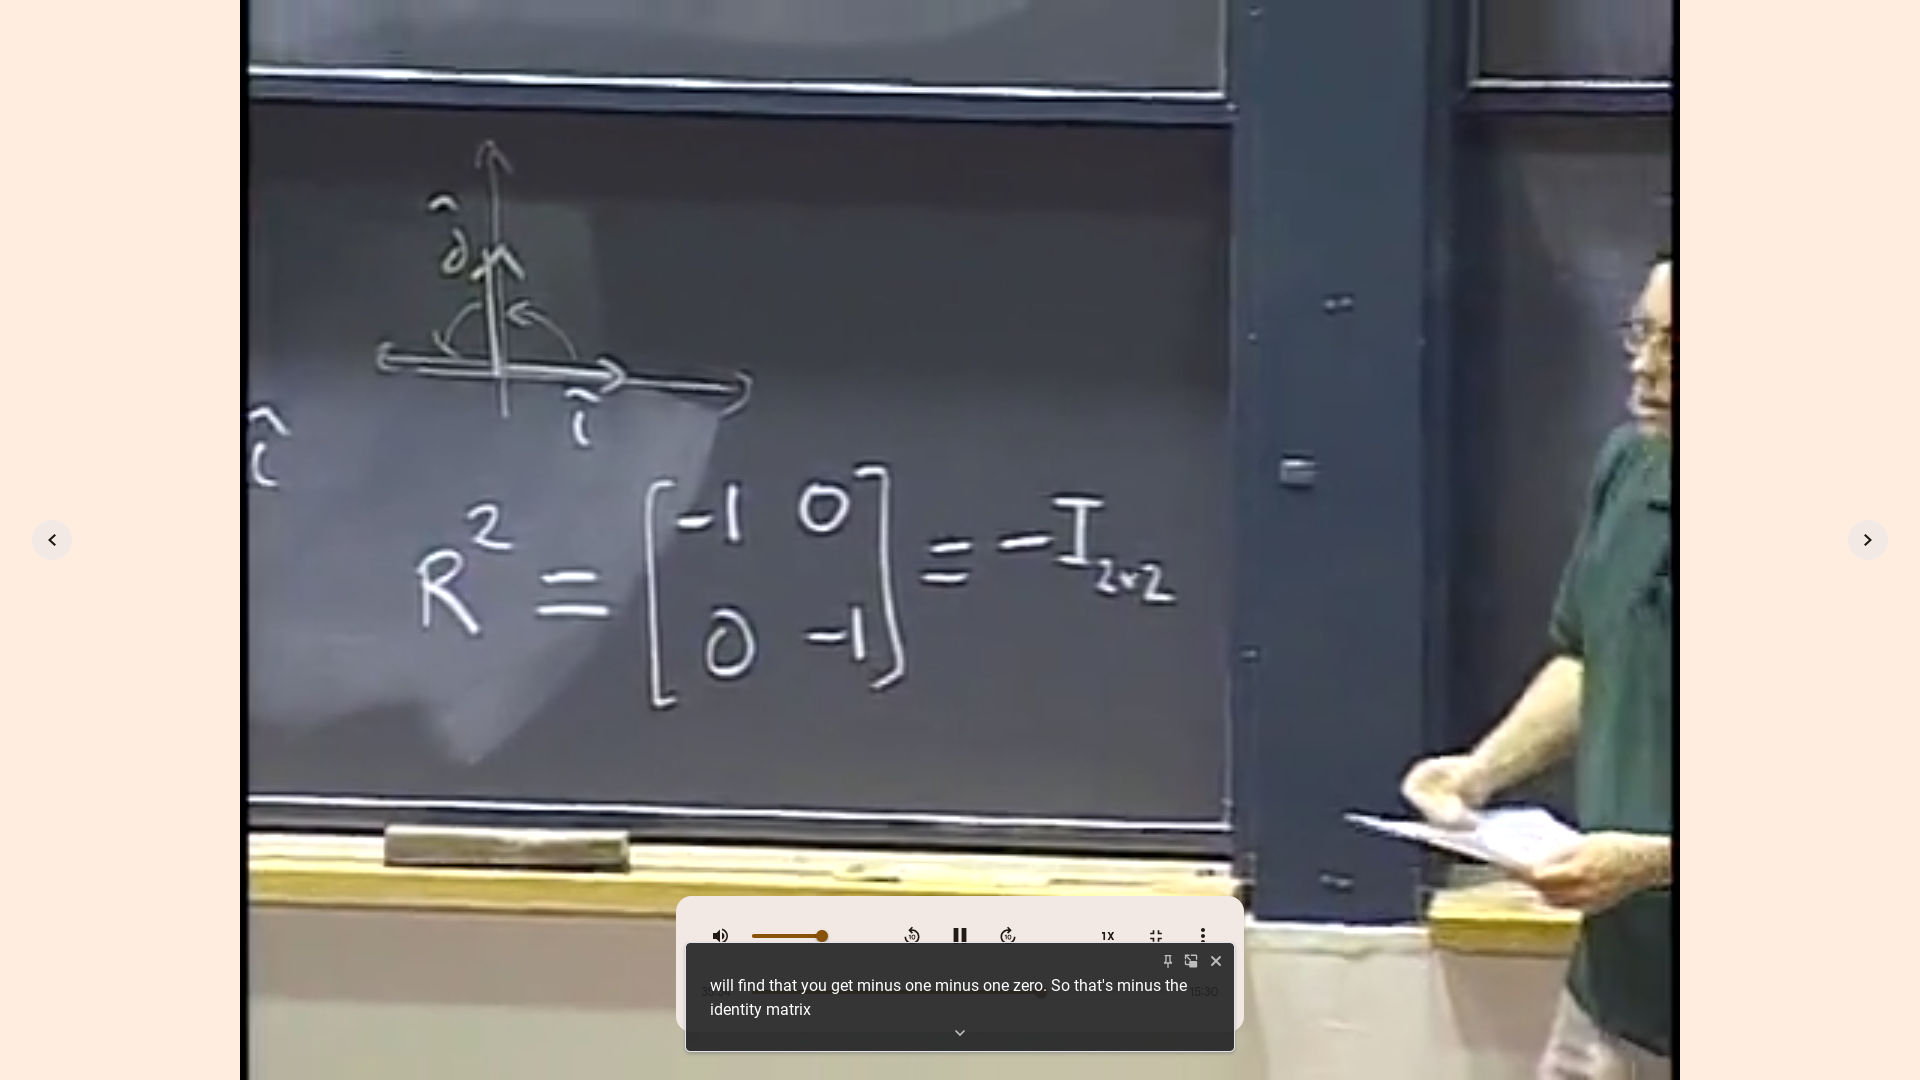 ĵ
î
î
R² = [-1 0
0 -1] = -I₂ₓ₂
10
10
1X
will find that you get minus one minus one zero. So that's minus the
identity matrix